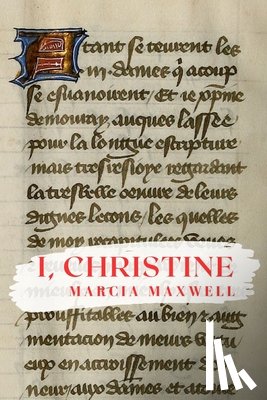 E tant se teurent les
iii. dames q̃ a coup
se esuanouirent. Et ie xp̃ine
demouray. auques lassee
pour la longue escripture
mais tresresioye regardant
la tresbelle oeuure de leurs
dignes lecons. les quelles
de moy
I, CHRISTINE
MARCIA MAXWELL
prouffitables au bien aug
mentacion de meurs vertu
eux en accroissement de
neur aux dames et a